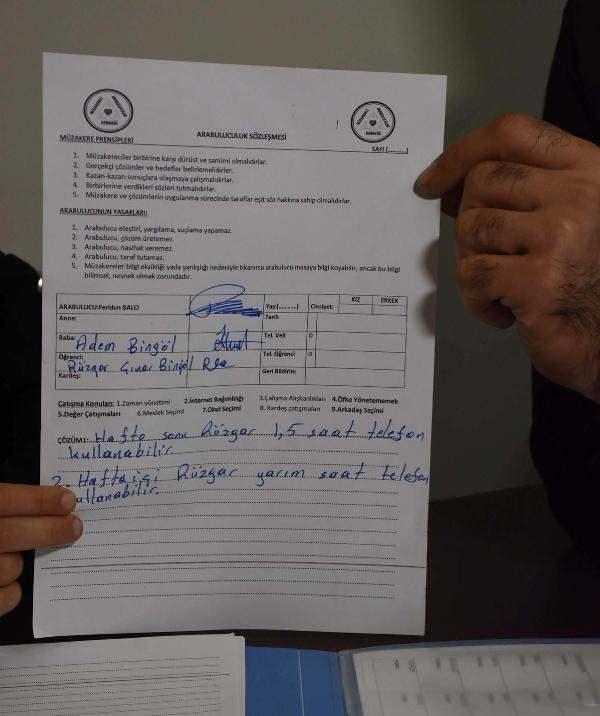 ARABULUCULUK SÖZLEŞMESİ
MÜZAKERE PRENSİPLERİ
SAYI (........)
1. Müzakereciler birbirine karşı dürüst ve samimi olmalıdırlar.
2. Gerçekçi çözümler ve hedefler belirlemelidirler.
3. Kazan-kazan sonuçlara ulaşmaya çalışmalıdırlar.
4. Birbirlerine verdikleri sözleri tutmalıdırlar.
5. Müzakere ve çözümlerin uygulanma sürecinde taraflar eşit söz hakkına sahip olmalıdırlar.
ARABULUCUNUN YASAKLARI:
1. Arabulucu eleştiri, yargılama, suçlama yapamaz.
2. Arabulucu, çözüm üretemez.
3. Arabulucu, nasihat veremez.
4. Arabulucu, taraf tutamaz.
5. Müzakereler bilgi eksikliği yada yanlışlığı nedeniyle tıkanırsa arabulucu masaya bilgi koyabilir, ancak bu bilgi
bilimsel, nesnel olmak zorundadır.
ARABULUCU:Feridun BALCI Yaş(..........) Cinsiyet: KIZ ERKEK
Anne: Tarih
Baba: Adem Bingöl Tel. Veli 0
Öğrenci: Rüzgar Çınar Bingöl Tel. Öğrenci 0
Kardeş: Geri Bildirim
Çatışma Konuları: 1.Zaman yönetimi 2.İnternet Bağımlılığı 3.Çalışma Alışkanlıkları 4.Öfke Yönetememek
5.Değer Çatışmaları 6.Meslek Seçimi 7.Okul Seçimi 8. Kardeş çatışmaları 9.Arkadaş Seçimi
ÇÖZÜM1: Hafta sonu Rüzgar 1,5 saat telefon
kullanabilir.
2. Hafta içi Rüzgar yarım saat telefon
kullanabilir.